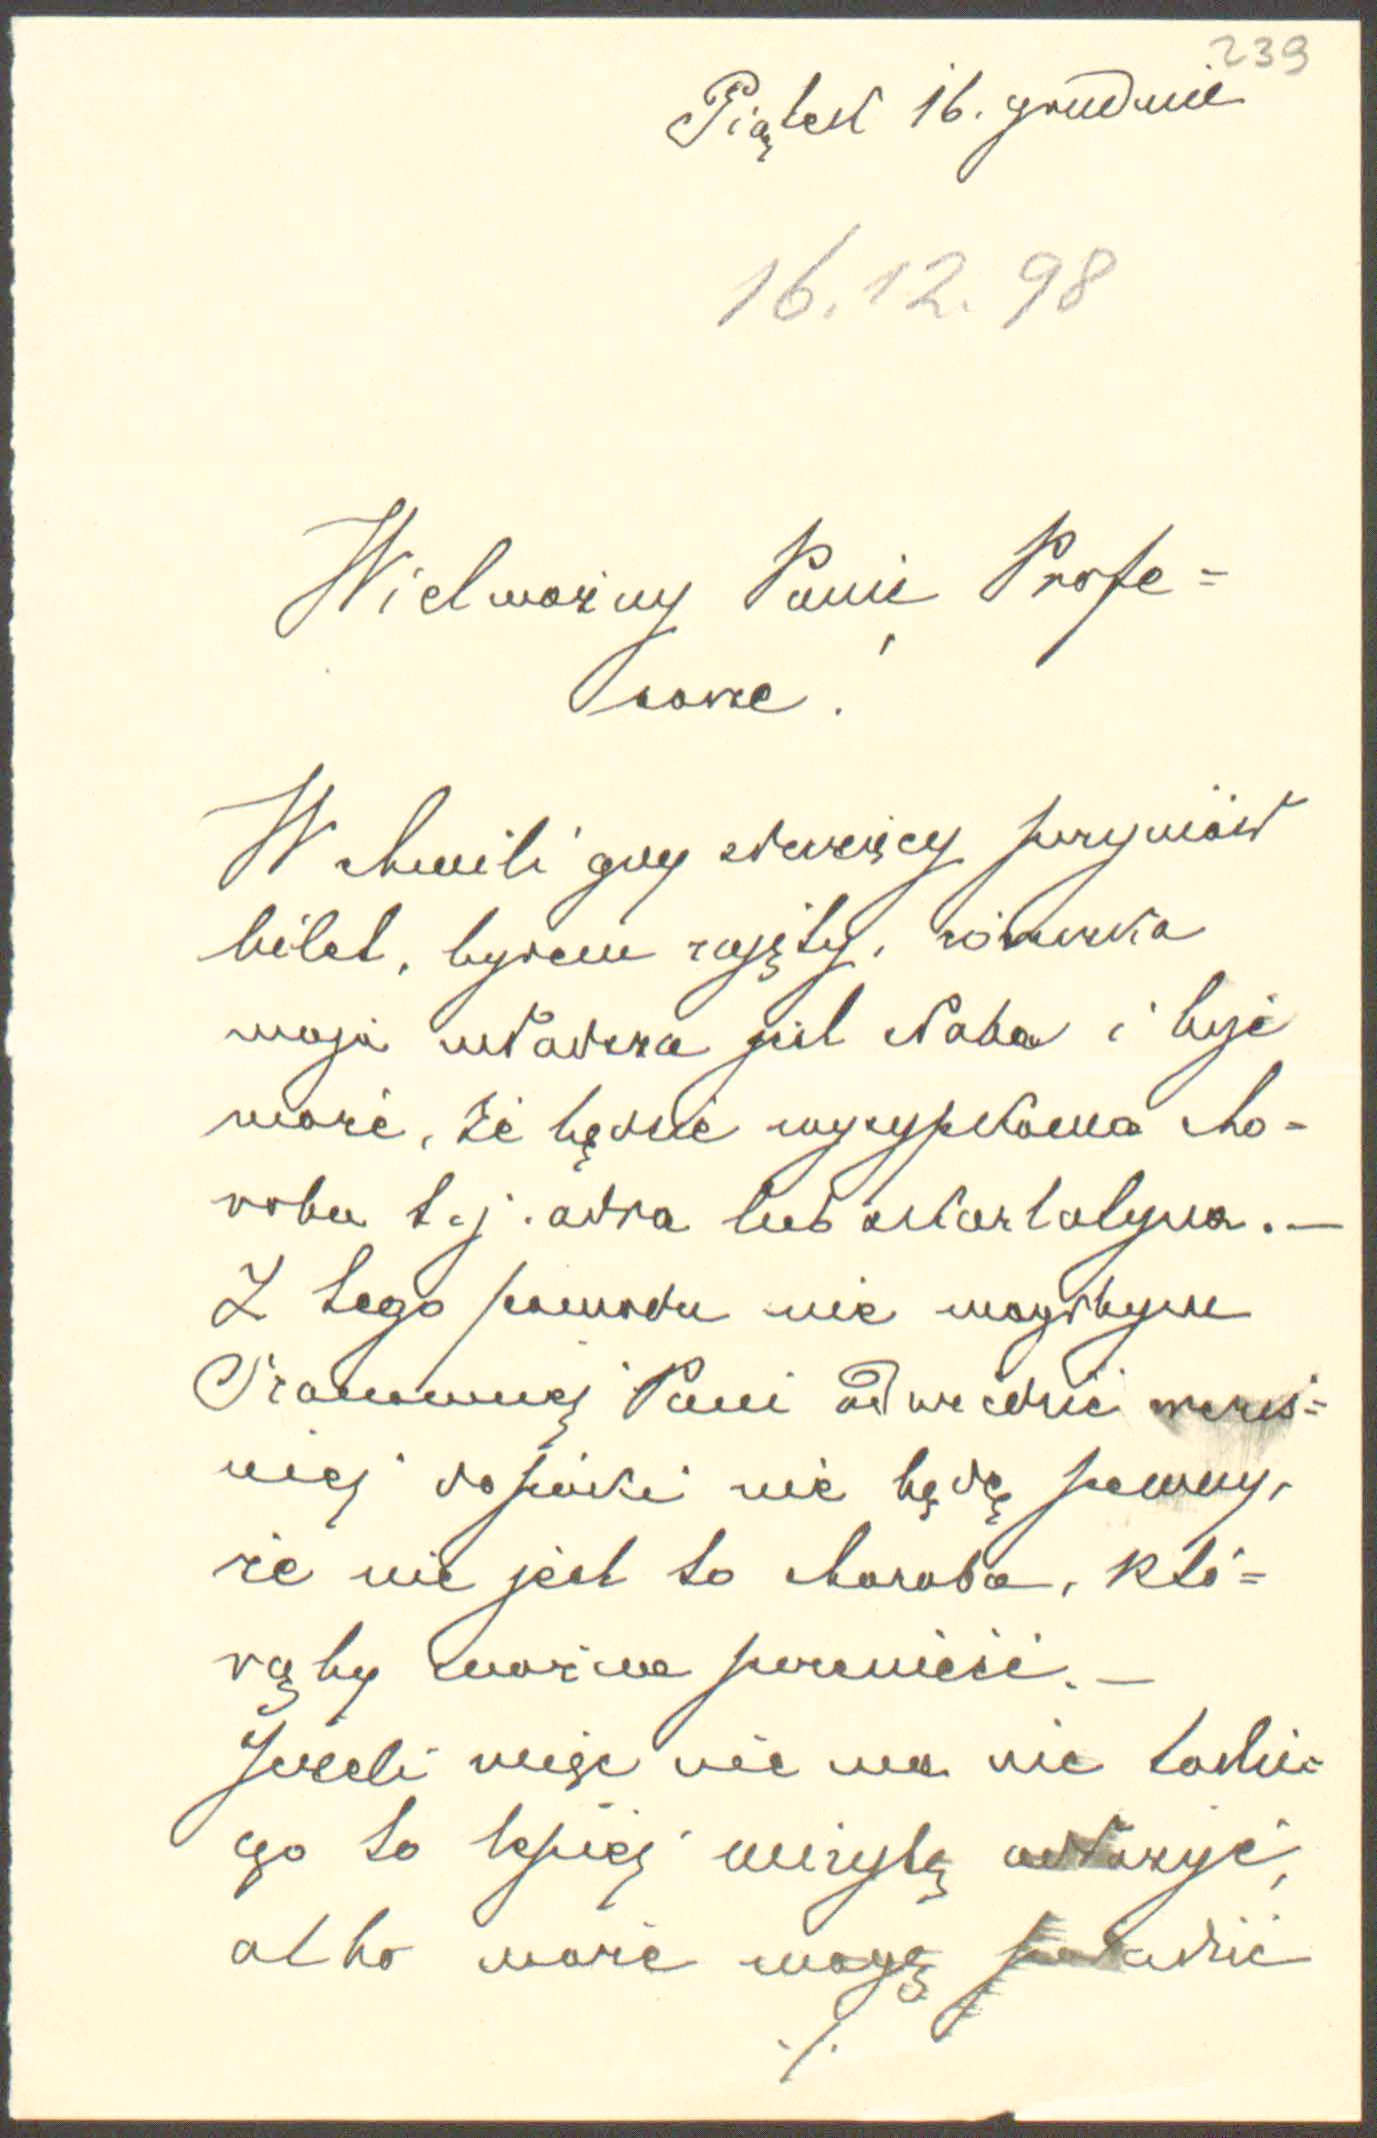 239
Piątek 16. grudnia
16.12.98
Wielmożny Panie Profe=
sorze!
W chwili gdy służący przyniósł
bilet, byłem zajęty, córeczka
moja młodsza jest słaba i być
może, że będzie wysypkowa cho-
roba t.j. odra lub szkarlatyna.—
Z tego powodu nie mógłbym
Szanownej Pani odwiedzić wcześ=
niej dopóki nie będę pewny,
że nie jest to choroba, któ=
rąby można przenieść.—
Jeżeli więc nie ma nic takie=
go to lepiej wizytę odłożyć,
albo może mogę poradzić
./.